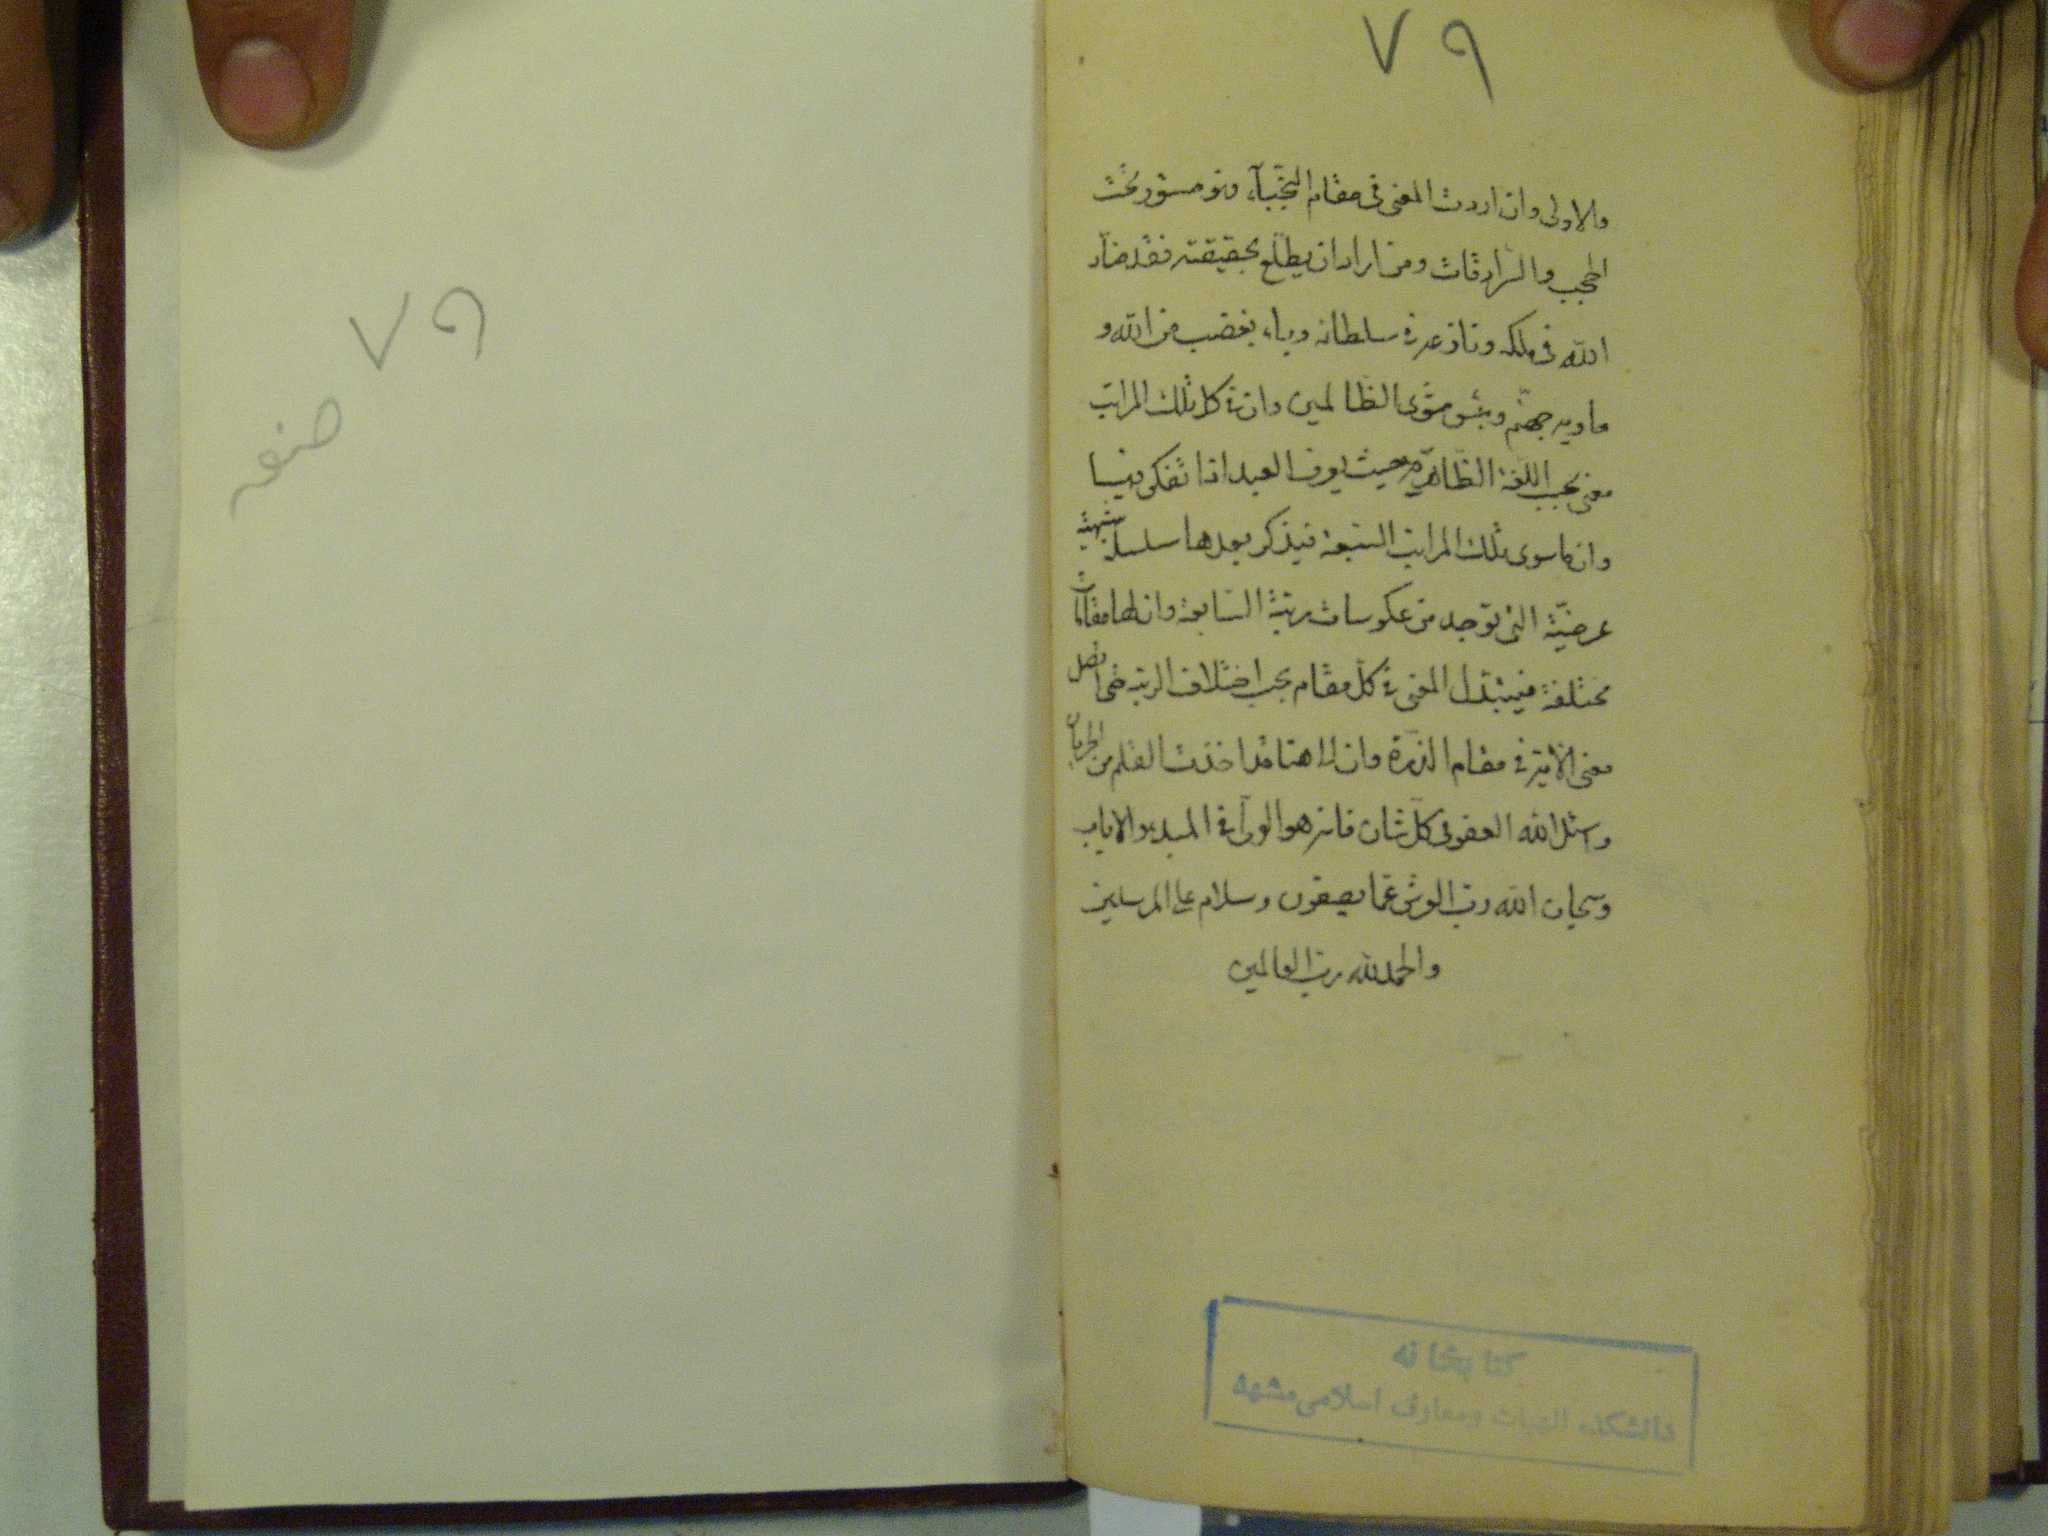 ٧٩
والاولى وان اردت المعنى فى مقام النجبآء وهو مستور تحت
الحجب والسرادقات ومن اراد ان يطلع بحقيقته فقد ضاد
الله فى ملكه ونازعه فى سلطانه وباء بغضب من الله و
ماويه جهنم وبئس مثوى الظالمين وان فى كل تلك المراتب
معنى بحسب اللغة الظاهرية حيث يعرف العبد اذا تفكر فيها
وان ماسوى تلك المراتب السبعة فيذكر بعدها سلسلة شبهية
عرضية التى توجد من عكوسات رتبة السابعة وان لها مقامات
مختلفة فيتبدل المعنى فى كل مقام بحسب اختلاف الرتبة حتى اتصل
معنى الآية فى مقام الذرة وان الى هنا قد اخذت القلم من الجريان
واسئل الله العفو فى كل شان فانه هو الولى فى المبدء والاياب
وسبحان الله رب العرش عما يصفون وسلام على المرسلين
والحمد لله رب العالمين
كتابخانه
دانشكده الهيات ومعارف اسلامى مشهد
٧٩
صفحه